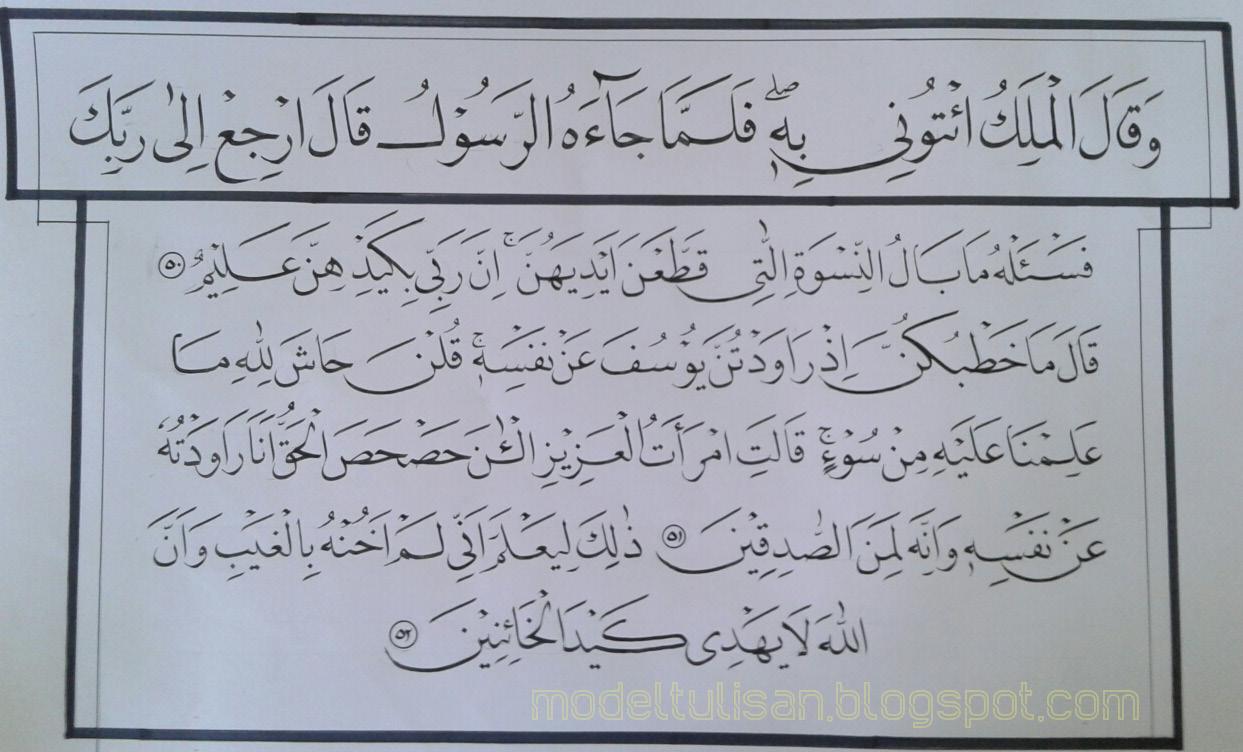 وَقَالَ الْمَلِكُ ائْتُوْنِي بِهٖۚ فَلَمَّا جَآءَهُ الرَّسُوْلُ قَالَ ارْجِعْ اِلٰى رَبِّكَ
فَسْئَلْهُ مَا بَالُ النِّسْوَةِ الّٰتِي قَطَّعْنَ اَيْدِيَهُنَّ ۚ اِنَّ رَبِّي بِكَيْدِهِنَّ عَلِيْمٌ ٥٠
قَالَ مَا خَطْبُكُنَّ اِذْ رَاوَدْتُنَّ يُوْسُفَ عَنْ نَفْسِهٖۚ قُلْنَ حَاشَ لِلّٰهِ مَا
عَلِمْنَا عَلَيْهِ مِنْ سُوْءٍۚ قَالَتِ امْرَأَتُ الْعَزِيْزِ الْـٰٔنَ حَصْحَصَ الْحَقُّ اَنَا رَاوَدْتُهٗ
عَنْ نَفْسِهٖ وَاِنَّهٗ لَمِنَ الصّٰدِقِيْنَ ٥١ ذٰلِكَ لِيَعْلَمَ اَنِّي لَمْ اَخُنْهُ بِالْغَيْبِ وَاَنَّ
اللّٰهَ لَا يَهْدِى كَيْدَ الْخَائِنِيْنَ ٥٢
modeltulisan.blogspot.com